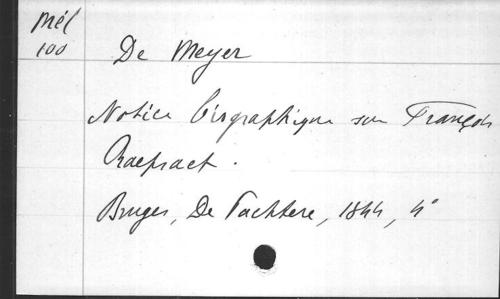 Mél
100
De Meyer
Notice biographique sur François
Raepsaet.
Bruges, De Pachtere, 1844, 4°